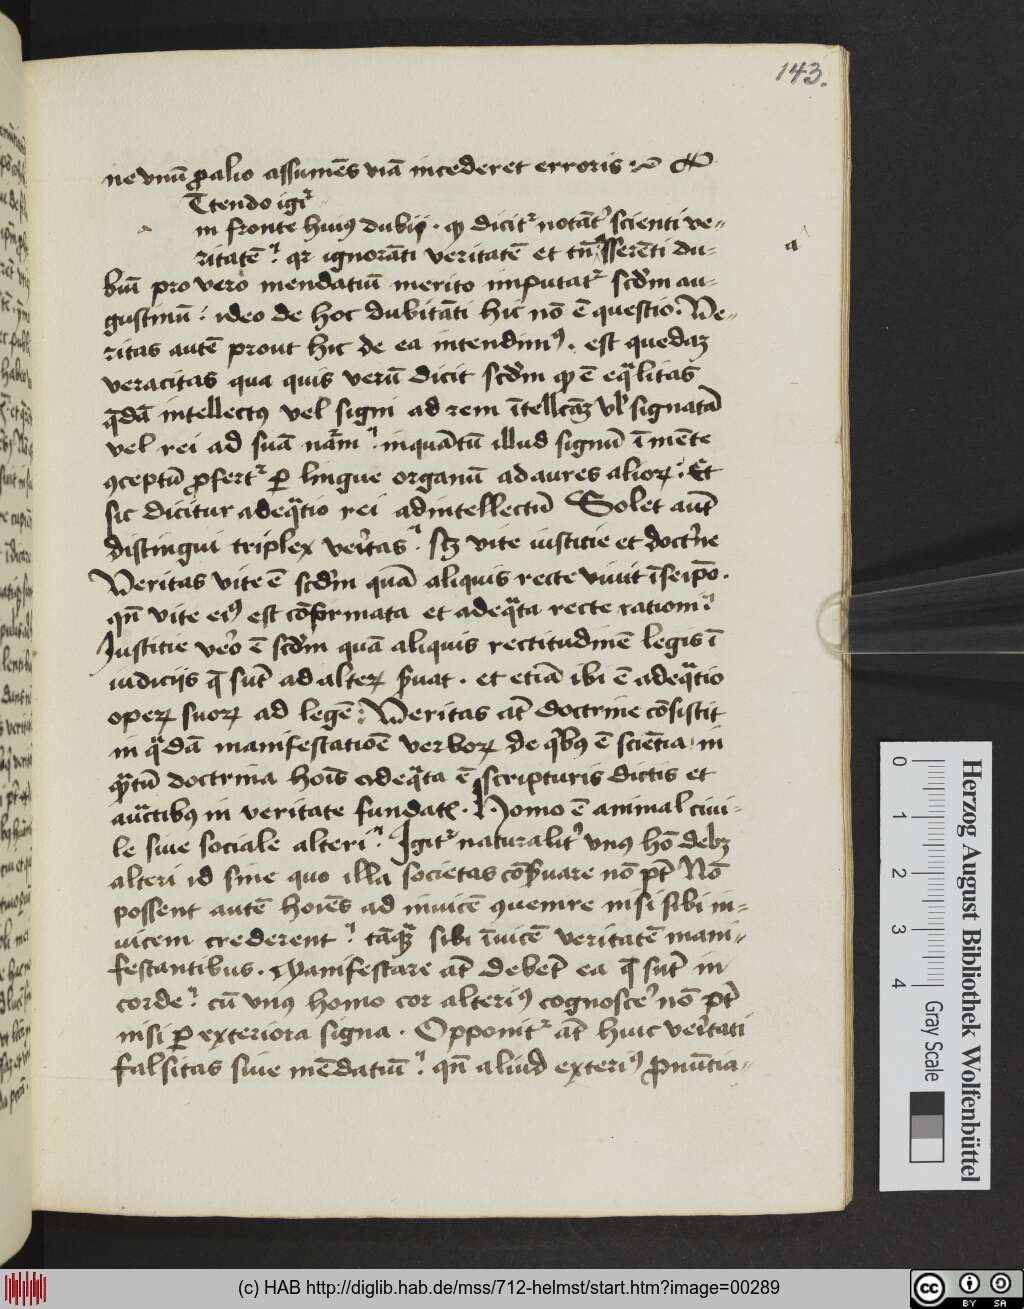 143.
ne vnū ꝓ alio assumēs viā incederet erroris
Ttendo igr̄
in fronte huiꝰ dubij · ꝙ dicit᷑ notāt᷑ scienti ve-
ritatē qr ignorāti veritatē et tn̄ asserēti du-
a
biū pro vero mendatiū merito imputat᷑ scd̄m au-
gustinū : ideo de hoc dubitāti hic nō ē questio. Ve-
ritas autē prout hic de ea intendimꝰ. est quedaꝫ
veracitas qua quis verū dicit scd̄m ꝙ ē eqͣlitas
qͣdā intellectꝰ vel signi ad rem ītellc̄aꝫ vl᷑ signatā
vel rei ad suā nāꝫ inquātū illud signū ī mēte
ꝯceptū ꝓfert᷑ ꝑ lingue organū ad aures alioꝝ. Et
sic dicitur adeqͣtio rei ad intellectū Solet aūt
distingui triplex ve᷑itas. sꝫ vite iusticie et doct᷑ne
Veritas vite ē scd̄m quā aliquis recte viuit ī seip̄o.
qn̄ vite eiꝰ est cōformata et adeqͣta recte rationi
Iusticie ve᷑o ē scd̄m quā aliquis rectitudinē legis ī
iudiciis q̄ sūt ad alteꝝ ẜuat. et etiā ibi ē adeqͣtio
opeꝝ suoꝝ ad legē : Veritas āt doctrine cōsistit
in qͣdā manifestatiōe verboꝝ de qͥbꝰ ē sciētia in
qͣtū doctrina hoīs adeqͣta ē scripturis dictis et
auc̄tibꝰ in veritate fundat᷑. Homo ē animal ciui-
le siue sociale alteri. Igit᷑ naturalit᷑ vnꝰ hō debꝫ
alteri id sine quo illa societas cōẜuare nō pt̄ Nō
possent autē hoīes ad inuicē ꝯuenire nisi sibi in-
uicem crederent tāqͣꝫ sibi īuicē veritatē mani-
festantibus. Manifestare āt debēt ea q̄ sūt in
corde. cū vnꝰ homo cor alteriꝰ cognosce᷑ nō pt̄
nisi ꝑ exteriora signa. Opponit᷑ āt huic ve᷑itati
falsitas siue mēdatiū. qn̄ aliud exteriꝰ ꝓnūtia-
Herzog August Bibliothek Wolfenbüttel
0 1 2 3 4 Gray Scale
(c) HAB http://diglib.hab.de/mss/712-helmst/start.htm?image=00289
cc BY SA